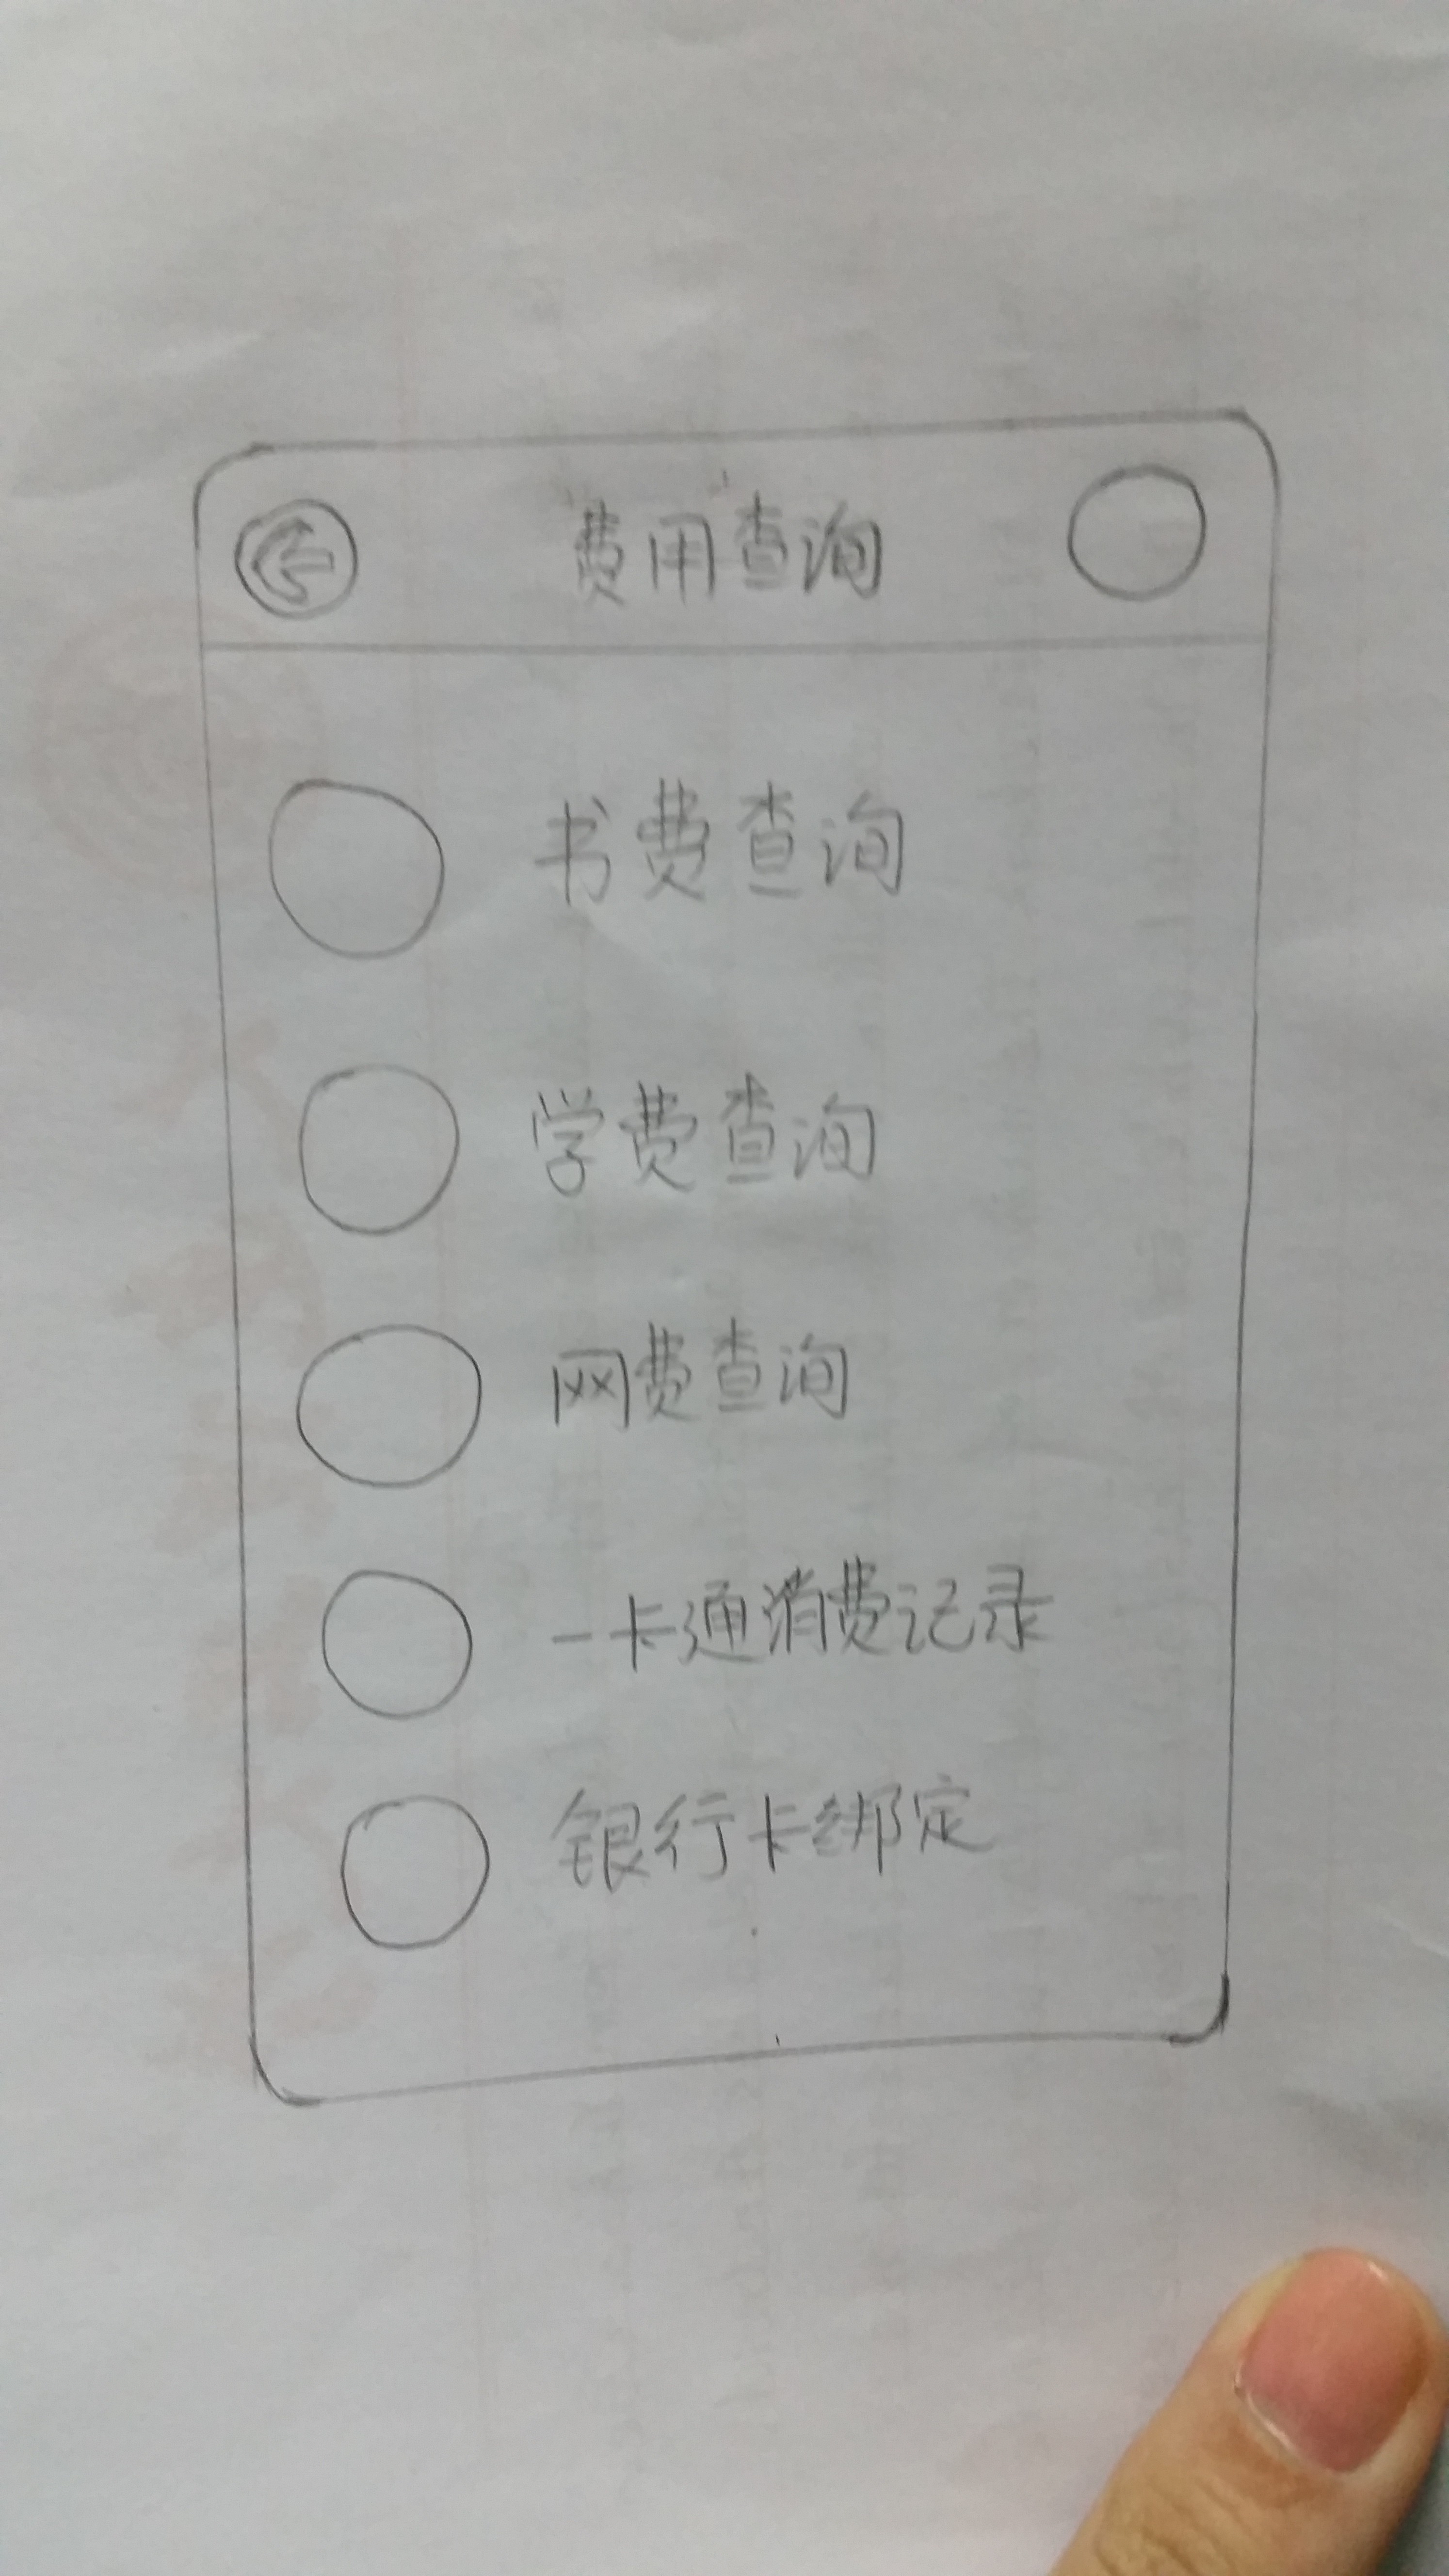 费用查询
书费查询
学费查询
网费查询
一卡通消费记录
银行卡绑定